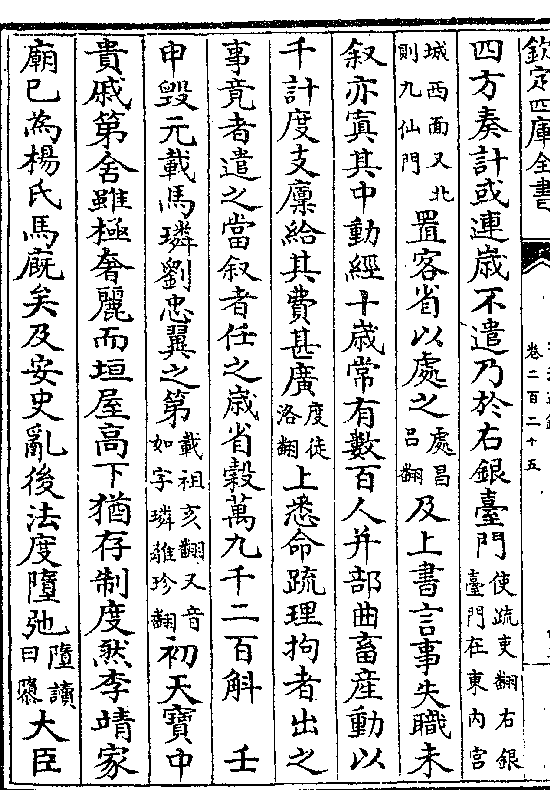 欽定四庫全書
卷二百二十五
四方奏計或連歲不遣乃於右銀臺門使疏吏翻右銀臺門在東内宫
城西面又北則九仙門置客省以處之處昌吕翻及上書言事失職未
叙亦寘其中動經十歲常有數百人并部曲畜産動以
千計度支廩給其費甚廣度徒洛翻上悉命疏理拘者出之
事竟者遣之當叙者任之歲省糓萬九千二百斛　壬
申毁元載馬璘劉忠翼之第載祖亥翻又音如字璘離珍翻初天寶中
貴戚第舍雖極奢麗而垣屋高下猶存制度然李靖家
廟已為楊氏馬廐矣及安史亂後法度墮弛墮讀曰隳大臣